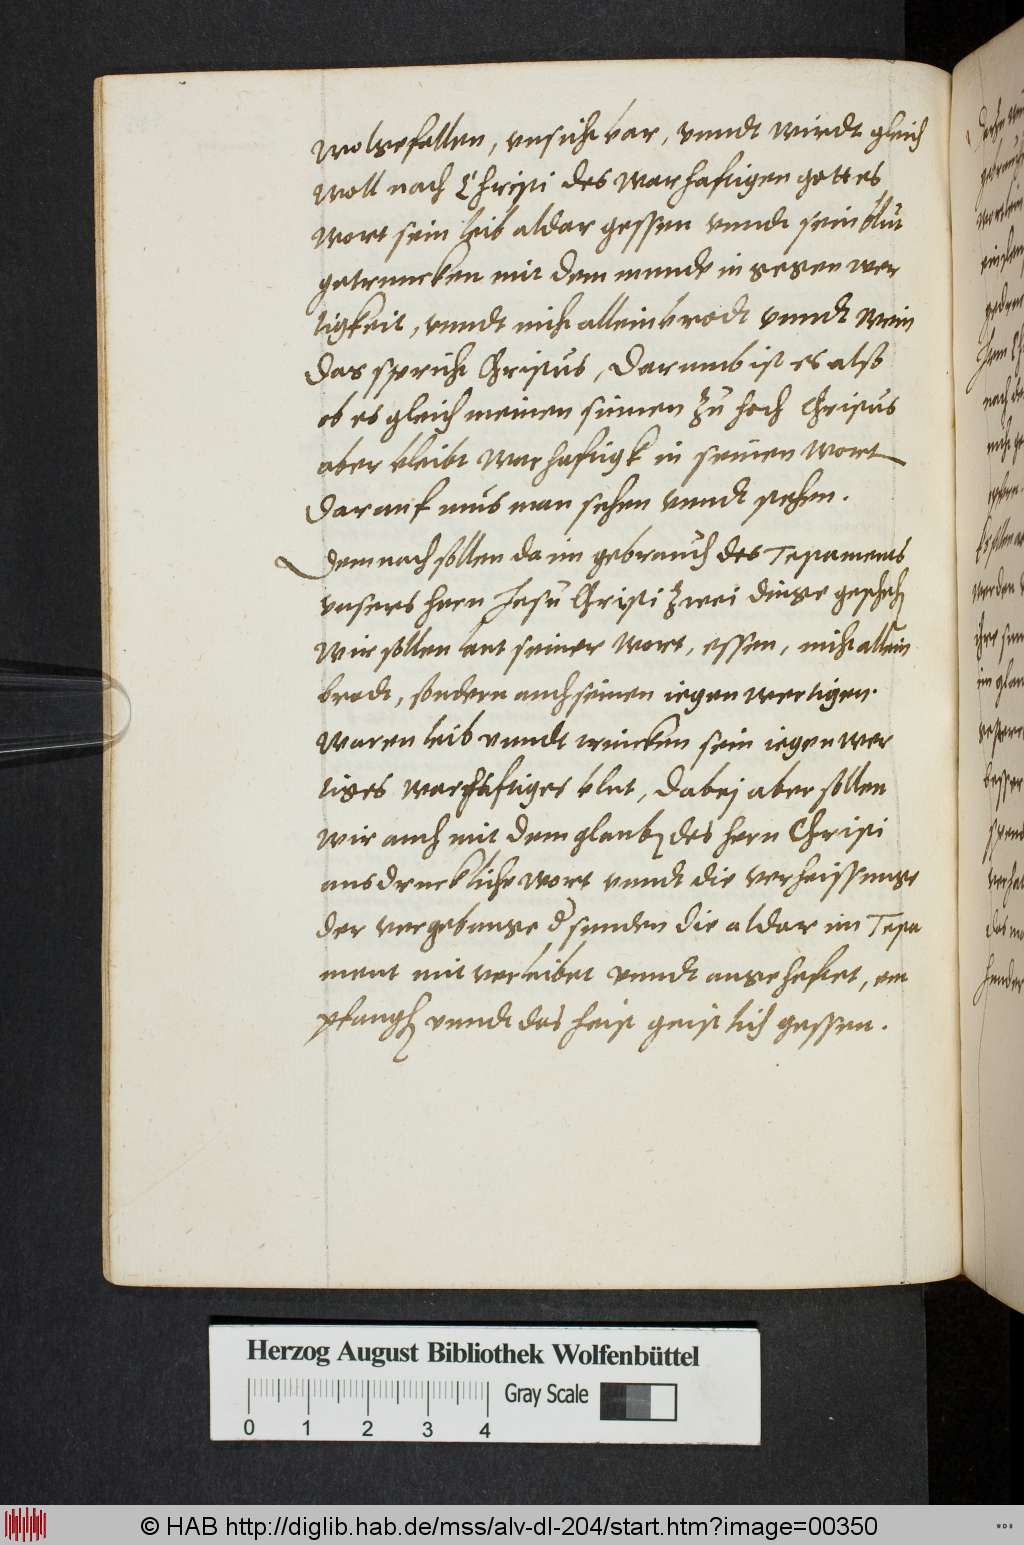 wolgefallen, vnsichtbar, vnndt wirdt gleich
woll nach Christi des warhafftigen gottes
wort sein leib aldar gessen vnndt sein blut
getruncken mit dem munde in gegenwer
tigkeit, vnndt nicht allein brodt vnndt wein
das spricht Christus, Darumb ist es also
ob es gleich meinen sinnen zu hoch Christus
aber bleibt warhafftigk in seinen wort
darauf mus man sehen vnndt stehen.
Demnach sollen da im gebrauch des Testaments
vnsers hern Jesu Christi zwei dinge geschehen
wir sollen laut seiner wort, essen, nicht allein
brodt, sondern auch seinen iegenwertigen
waren leib vnndt trincken sein iegenwer
tiges warhafftiges blut, dabej aber sollen
wir auch mit dem glauben des hern Christi
ausdruckliche wort vnndt die verheissunge
der vergebunge der sunden die aldar im Testa
ment mit verleibet vnndt angehefftet, em
pfangen vnndt das heist geistlich gessen.
Herzog August Bibliothek Wolfenbüttel
0 1 2 3 4 Gray Scale
© HAB http://diglib.hab.de/mss/alv-dl-204/start.htm?image=00350